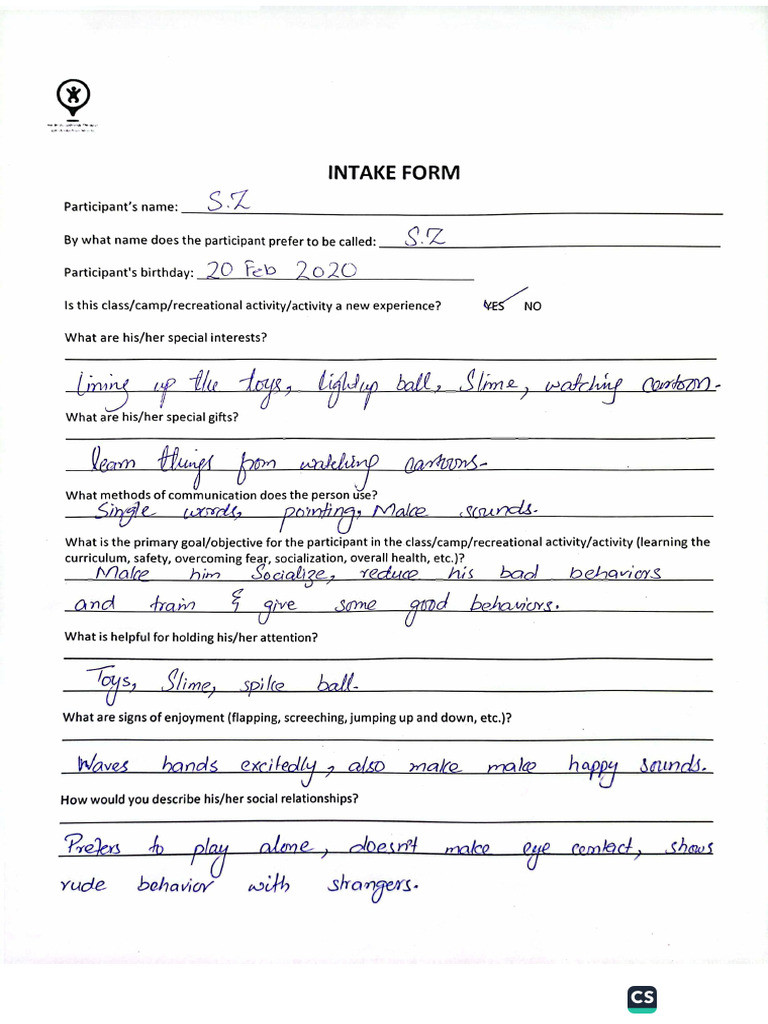 INTAKE FORM
Participant's name: S.Z
By what name does the participant prefer to be called: S.Z
Participant's birthday: 20 Feb 2020
Is this class/camp/recreational activity/activity a new experience? YES NO
What are his/her special interests?
Lining up the toys, light up ball, Slime, watching cartoon.
What are his/her special gifts?
learn things from watching cartoons.
What methods of communication does the person use?
Single words, pointing, Make sounds.
What is the primary goal/objective for the participant in the class/camp/recreational activity/activity (learning the
curriculum, safety, overcoming fear, socialization, overall health, etc.)?
Make him Socialize, reduce his bad behaviors
and train & give some good behaviors.
What is helpful for holding his/her attention?
Toys, Slime, spike ball.
What are signs of enjoyment (flapping, screeching, jumping up and down, etc.)?
Waves hands excitedly, also make make happy sounds.
How would you describe his/her social relationships?
Prefers to play alone, doesn't make eye contact, shows
rude behavior with strangers.
CS